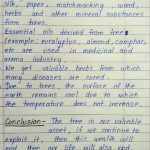 Silk, paper, matchmaking, wood,
herbs and other mineral substances
from trees.
Essential oils derived from trees
(example, eucalyptus, almond, camphor
etc are used in medicinal and
aroma industry.
We get valuable herbs from which
many diseases are cured.
Due to trees, the surface of the
earth remains cool due to which
the temperature does not increase
Conclusion - The tree is our valuable
asset, if we continue to
exploit it, then this wealth will
end then our life will also end.